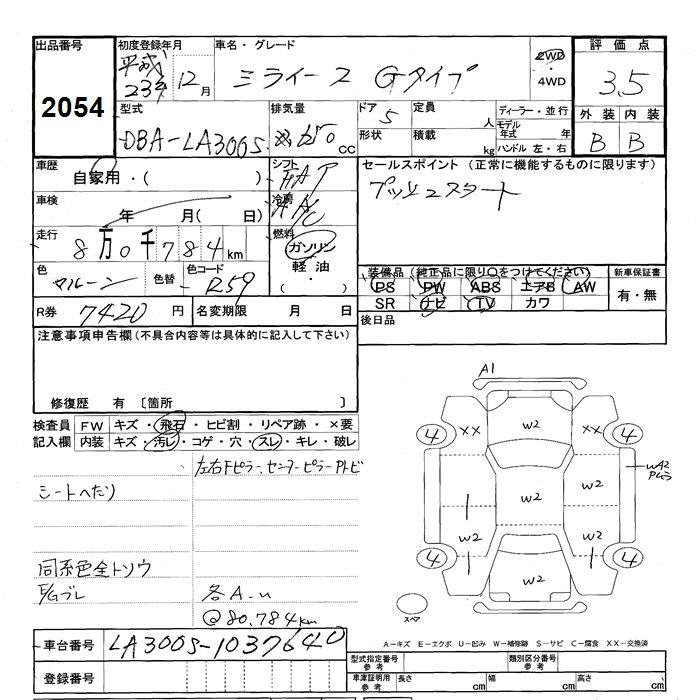 出品番号
2054
初度登録年月
平成 23年 12月
車名・グレード
ミライース Gタイプ
2WD
・
4WD
評価点
3.5
外装 内装
B B
型式
DBA-LA300S
排気量
660 cc
ドア 5
定員 人
形状
積載 kg
ディーラー・並行
モデル年式 年
ハンドル 左・右
車歴
自家用・( )
シフト
FAT
冷房
A/C
セールスポイント (正常に機能するものに限ります)
プッシュスタート
車検
年 月( 日)
走行
8万0千784km
燃料
ガソリン
軽油
( ・ )
色
マルーン
色替
色コード
R59
装備品 (純正品に限り○をつけてください)
PS PW ABS エアB AW
SR ナビ TV カワ
新車保証書
有・無
R券 7420 円
名変期限 月 日
後日品
注意事項申告欄 (不具合内容等は具体的に記入して下さい)
修復歴 有 〔箇所 〕
検査員記入欄
FW キズ・飛石・ヒビ割・リペア跡・×要
内装 キズ・汚レ・コゲ・穴・スレ・キレ・破レ
左右Fピラー、センターピラーアトビ
シートへたり
同系色全トソウ
F/Gブレ
各A-u
@80,784km
A1
W2
4 XX XX 4
W2 W2 W2
W42
4 W2 W2 4
W2
スペア
A-キズ E-エクボ U-凹み W-補修跡 S-サビ C-腐食 XX-交換済
車台番号 LA300S-1037640
登録番号
型式指定番号 参考
類別区分番号 参考
車庫証明用 参考
長さ cm 幅 cm 高さ cm